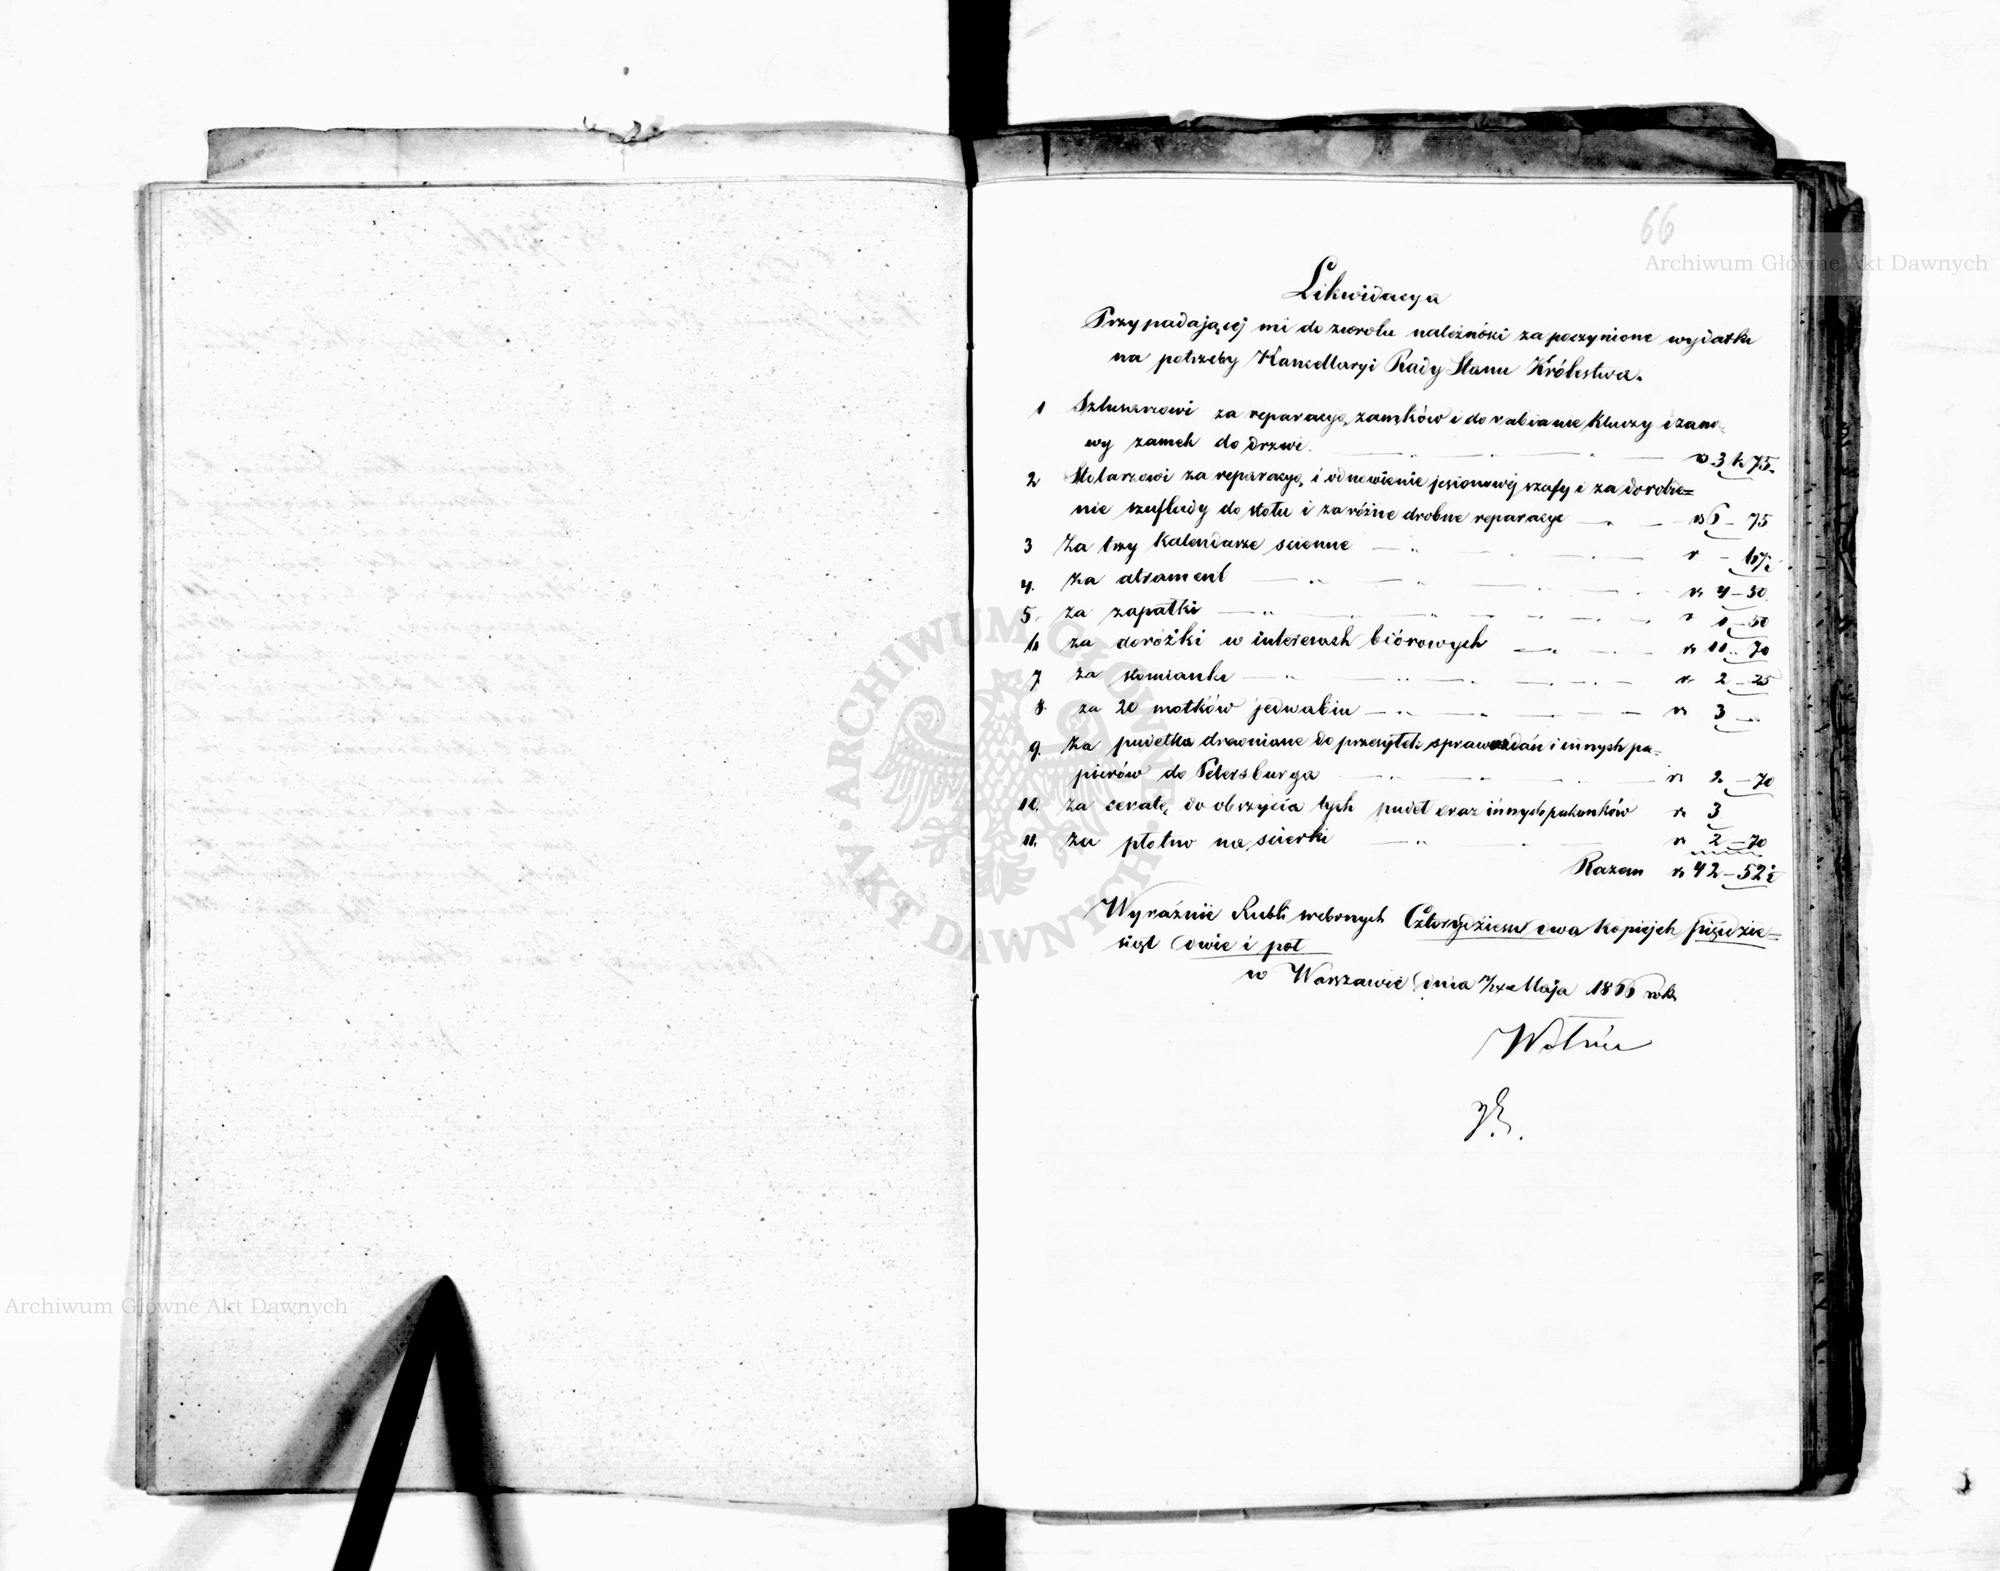 66
Archiwum Główne Akt Dawnych
Likwidacya
Przypadającej mi do zwrotu należności za poczynione wydatki
na potrzeby Kancellaryi Rady Stanu Królestwa.
1 Szlusarzowi za reparacyę zamków i dorabianie kluczy i za no-
wy zamek do drzwi. rs 3 k 75.
2 Stolarzowi za reparacyę i odnowienie jesionowéj szafy i za dorobie=
nie szuflady do stołu i za różne drobne reparacye rs 6 - 75
3 Za trzy kalendarze scienne r -
4. Za atrament rs 4 - 50
5. Za zapałki r 1 - 50
6 za doróżki w interesach biórowych rs 11 - 70
7 za słomianki rs 2 - 25
8 za 20 motków jedwabiu rs 3 -
9. Za pudełka drewniane do przesyłek sprawozdań i innych pa-
pierów do Petersburga rs 2 - 70
10. Za ceratę do obszycia tych pudeł oraz innych pakunków rs 3
11. Za płótno na scierki rs 2 - 70
Razem rs 42 - 52½
Wyraźnie Rubli srebrnych Czterydzieści dwa kopiejek pięćdzie=
siąt dwie i pół
w Warszawie dnia Maja 1866 roku
ARCHIWUM GŁÓWNE AKT DAWNYCH
Archiwum Główne Akt Dawnych